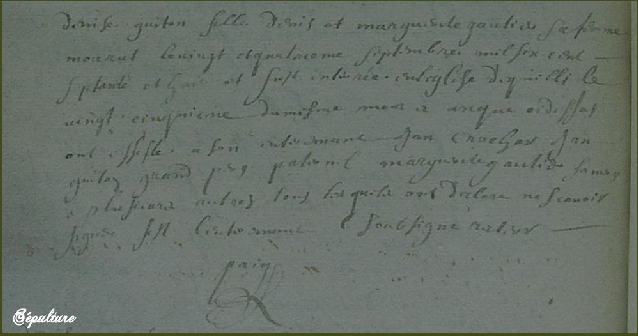 denise guiton fille denis et marguerite gautier sa femme
mourut le vingt et quatriesme septembre mil six cent
septante et huit et fust enterée en leglise de quilli le
vingt cinquieme du misme mois
ont assisté a son enterement Jan crochar Jan
guiton grand pere paternel marguerite gautier
& plusieurs autres tous lesquels ont declare ne scavoir
signer fist l'enterement le soubsigné
Sépulture